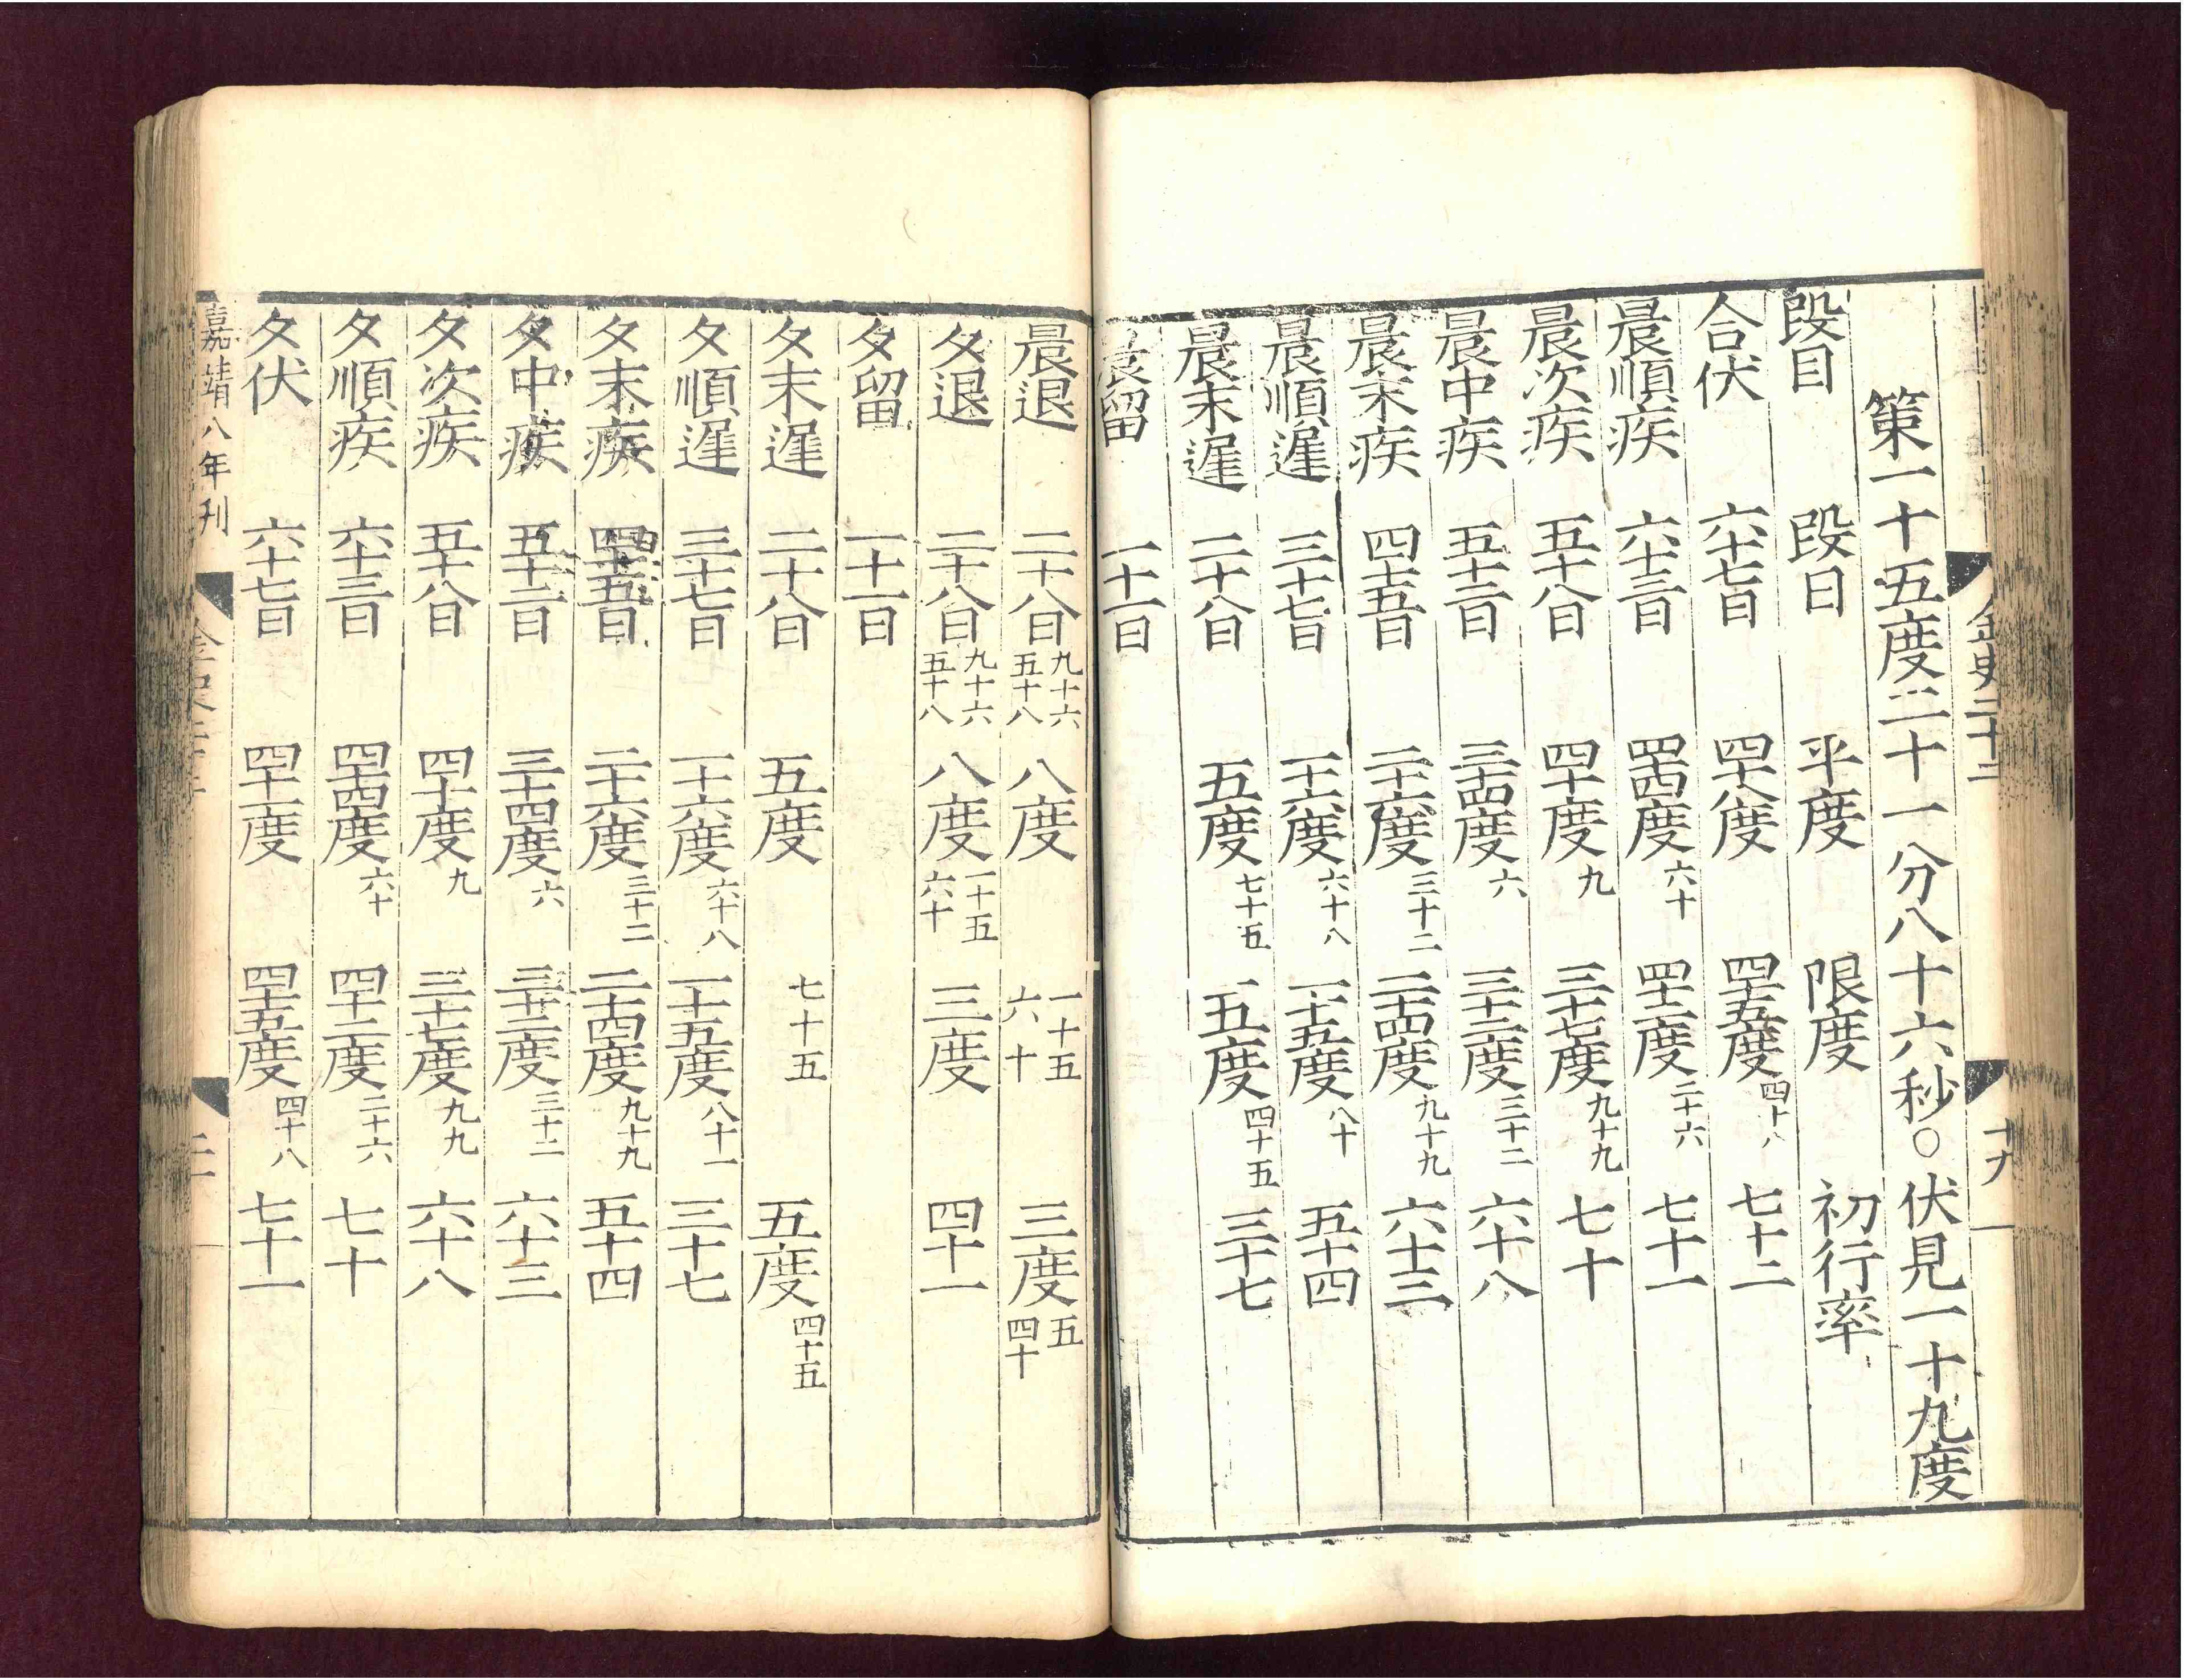 第一十五度二十一分八十六秒○伏見一十九度
段目 段日 平度 限度 初行率
合伏 六十七日 四十八度 四十五度四十八 七十二
晨順疾 六十三日 四十四度六十 四十二度二十六 七十一
晨次疾 五十八日 四十度九 三十七度九十九 七十
晨中疾 五十二日 三十四度六 三十二度三十二 六十八
晨末疾 四十五日 二十六度三十二 二十四度九十九 六十三
晨順遲 三十七日 一十六度六十八 一十五度八十 五十四
晨末遲 二十八日 五度七十五 五度四十五 三十七
晨留 一十一日
金史二十二
十九
晨退 二十八日九十六五十八 八度 一十五六十 三度五四十
夕退 二十八日九十六五十八 八度一十五六十 三度 四十一
夕留 一十一日
夕末遲 二十八日 五度 七十五 五度四十五
夕順遲 三十七日 一十六度六十八 一十五度八十一 三十七
夕末疾 四十五日 二十六度三十二 二十四度九十九 五十四
夕中疾 五十二日 三十四度六 三十二度三十二 六十三
夕次疾 五十八日 四十度九 三十七度九九 六十八
夕順疾 六十三日 四十四度六十 四十二度二十六 七十
夕伏 六十七日 四十一度 四十五度四十八 七十一
嘉靖八年刊